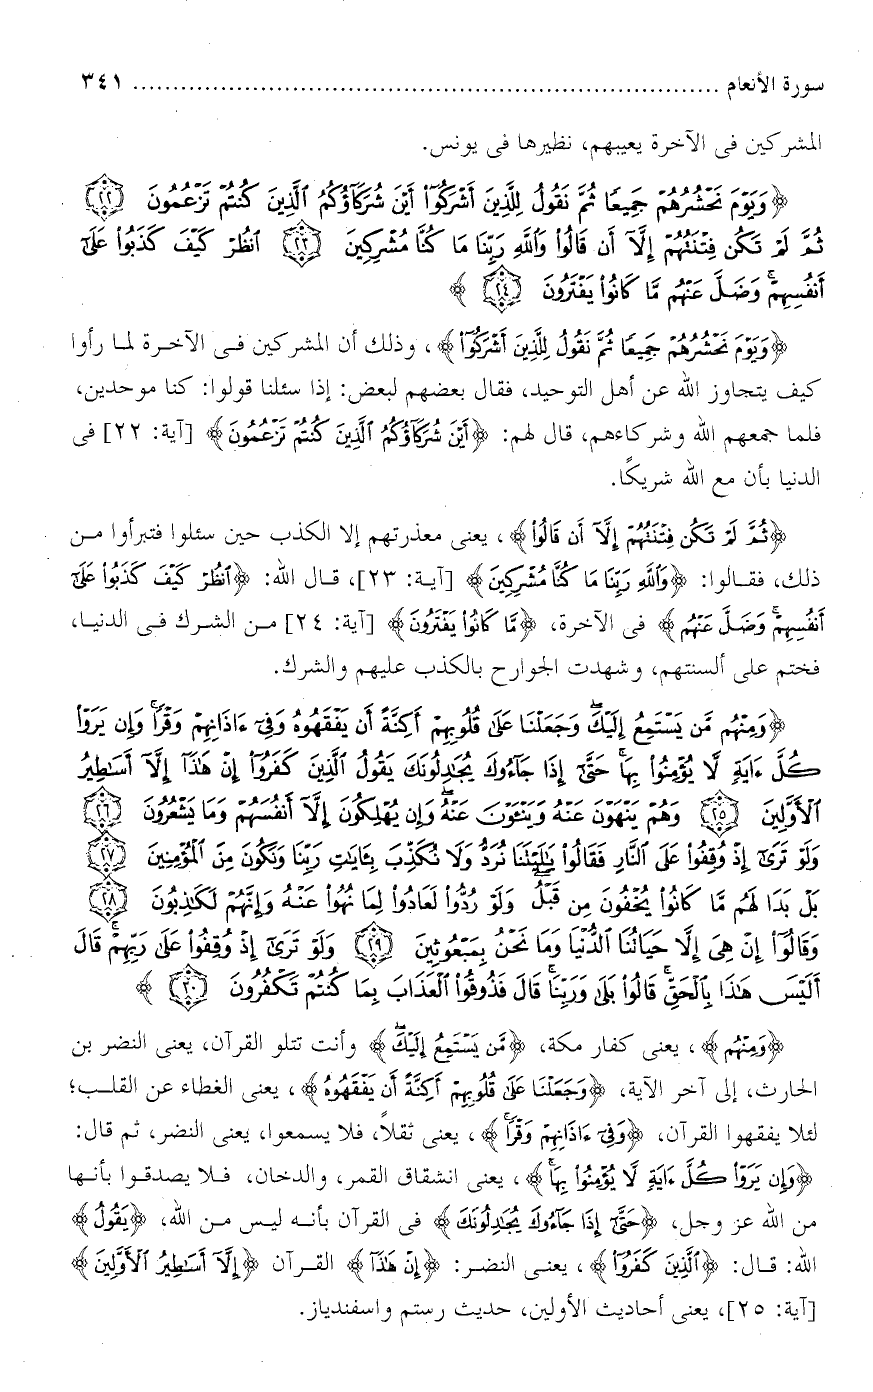 سورة الأنعام ........................................................................ ٣٤١
المشركين فى الآخرة يعيبهم، نظيرها فى يونس.
﴿وَيَوْمَ نَحْشُرُهُمْ جَمِيعًا ثُمَّ نَقُولُ لِلَّذِينَ أَشْرَكُوٓا۟ أَيْنَ شُرَكَآؤُكُمُ ٱلَّذِينَ كُنتُمْ تَزْعُمُونَ ﴿٢٢﴾
ثُمَّ لَمْ تَكُن فِتْنَتُهُمْ إِلَّآ أَن قَالُوا۟ وَٱللَّهِ رَبِّنَا مَا كُنَّا مُشْرِكِينَ ﴿٢٣﴾ ٱنظُرْ كَيْفَ كَذَبُوا۟ عَلَىٰٓ
أَنفُسِهِمْ ۚ وَضَلَّ عَنْهُم مَّا كَانُوا۟ يَفْتَرُونَ ﴿٢٤﴾ ﴾
﴿وَيَوْمَ نَحْشُرُهُمْ جَمِيعًا ثُمَّ نَقُولُ لِلَّذِينَ أَشْرَكُوٓا۟﴾، وذلك أن المشركين فى الآخرة لما رأوا
كيف يتجاوز الله عن أهل التوحيد، فقال بعضهم لبعض: إذا سئلنا قولوا: كنا موحدين،
فلما جمعهم الله وشركاءهم، قال لهم: ﴿أَيْنَ شُرَكَآؤُكُمُ ٱلَّذِينَ كُنتُمْ تَزْعُمُونَ﴾ [آية: ٢٢] فى
الدنيا بأن مع الله شريكًا.
﴿ثُمَّ لَمْ تَكُن فِتْنَتُهُمْ إِلَّآ أَن قَالُوا۟﴾، يعنى معذرتهم إلا الكذب حين سئلوا فتبرأوا من
ذلك، فقالوا: ﴿وَٱللَّهِ رَبِّنَا مَا كُنَّا مُشْرِكِينَ﴾ [آية: ٢٣]، قال الله: ﴿ٱنظُرْ كَيْفَ كَذَبُوا۟ عَلَىٰٓ
أَنفُسِهِمْ ۚ وَضَلَّ عَنْهُم﴾ فى الآخرة، ﴿مَّا كَانُوا۟ يَفْتَرُونَ﴾ [آية: ٢٤] من الشرك فى الدنيا،
فختم على ألسنتهم، وشهدت الجوارح بالكذب عليهم والشرك.
﴿وَمِنْهُم مَّن يَسْتَمِعُ إِلَيْكَ ۖ وَجَعَلْنَا عَلَىٰ قُلُوبِهِمْ أَكِنَّةً أَن يَفْقَهُوهُ وَفِىٓ ءَاذَانِهِمْ وَقْرًا ۚ وَإِن يَرَوْا۟
كُلَّ ءَايَةٍ لَّا يُؤْمِنُوا۟ بِهَا ۚ حَتَّىٰٓ إِذَا جَآءُوكَ يُجَٰدِلُونَكَ يَقُولُ ٱلَّذِينَ كَفَرُوٓا۟ إِنْ هَٰذَآ إِلَّآ أَسَٰطِيرُ
ٱلْأَوَّلِينَ ﴿٢٥﴾ وَهُمْ يَنْهَوْنَ عَنْهُ وَيَنْـَٔوْنَ عَنْهُ ۖ وَإِن يُهْلِكُونَ إِلَّآ أَنفُسَهُمْ وَمَا يَشْعُرُونَ ﴿٢٦﴾
وَلَوْ تَرَىٰٓ إِذْ وُقِفُوا۟ عَلَى ٱلنَّارِ فَقَالُوا۟ يَٰلَيْتَنَا نُرَدُّ وَلَا نُكَذِّبَ بِـَٔايَٰتِ رَبِّنَا وَنَكُونَ مِنَ ٱلْمُؤْمِنِينَ ﴿٢٧﴾
بَلْ بَدَا لَهُم مَّا كَانُوا۟ يُخْفُونَ مِن قَبْلُ ۖ وَلَوْ رُدُّوا۟ لَعَادُوا۟ لِمَا نُهُوا۟ عَنْهُ وَإِنَّهُمْ لَكَٰذِبُونَ ﴿٢٨﴾
وَقَالُوٓا۟ إِنْ هِىَ إِلَّا حَيَاتُنَا ٱلدُّنْيَا وَمَا نَحْنُ بِمَبْعُوثِينَ ﴿٢٩﴾ وَلَوْ تَرَىٰٓ إِذْ وُقِفُوا۟ عَلَىٰ رَبِّهِمْ ۚ قَالَ
أَلَيْسَ هَٰذَا بِٱلْحَقِّ ۚ قَالُوا۟ بَلَىٰ وَرَبِّنَا ۚ قَالَ فَذُوقُوا۟ ٱلْعَذَابَ بِمَا كُنتُمْ تَكْفُرُونَ ﴿٣٠﴾ ﴾
﴿وَمِنْهُم﴾، يعنى كفار مكة، ﴿مَّن يَسْتَمِعُ إِلَيْكَ ۖ﴾ وأنت تتلو القرآن، يعنى النضر بن
الحارث، إلى آخر الآية، ﴿وَجَعَلْنَا عَلَىٰ قُلُوبِهِمْ أَكِنَّةً أَن يَفْقَهُوهُ﴾، يعنى الغطاء عن القلب؛
لئلا يفقهوا القرآن، ﴿وَفِىٓ ءَاذَانِهِمْ وَقْرًا ۚ﴾، يعنى ثقلاً، فلا يسمعوا، يعنى النضر، ثم قال:
﴿وَإِن يَرَوْا۟ كُلَّ ءَايَةٍ لَّا يُؤْمِنُوا۟ بِهَا ۚ﴾، يعنى انشقاق القمر، والدخان، فلا يصدقوا بأنها
من الله عز وجل، ﴿حَتَّىٰٓ إِذَا جَآءُوكَ يُجَٰدِلُونَكَ﴾ فى القرآن بأنه ليس من الله، ﴿يَقُولُ﴾
الله: قال: ﴿ٱلَّذِينَ كَفَرُوٓا۟﴾، يعنى النضر: ﴿إِنْ هَٰذَآ﴾ القرآن ﴿إِلَّآ أَسَٰطِيرُ ٱلْأَوَّلِينَ﴾
[آية: ٢٥]، يعنى أحاديث الأولين، حديث رستم واسفندياز.